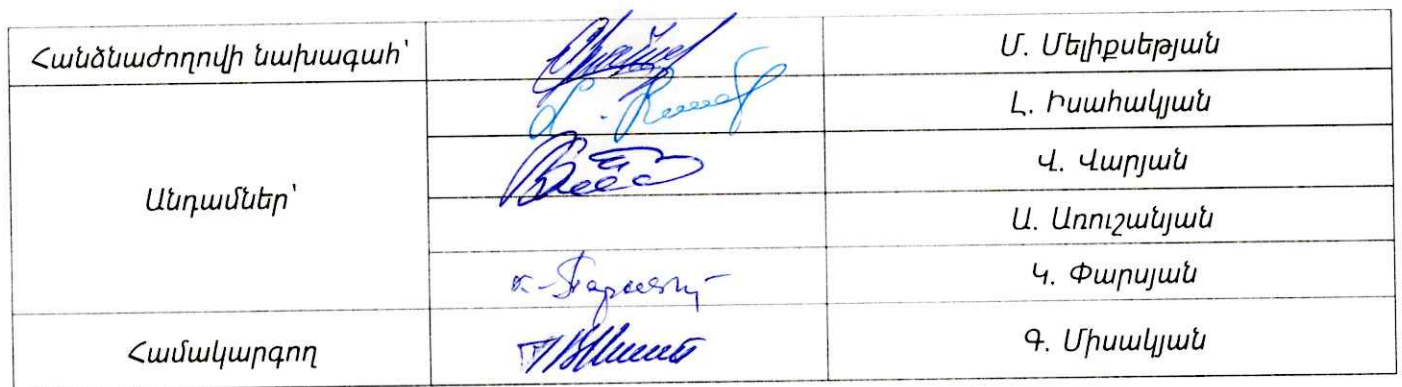 Հանձնաժողովի նախագահ՝
Մ. Մելիքսեթյան
Անդամներ՝
Լ. Իսահակյան
Վ. Վարյան
Ա. Առուշանյան
Կ. Փարսյան
Համակարգող
Գ. Միսակյան